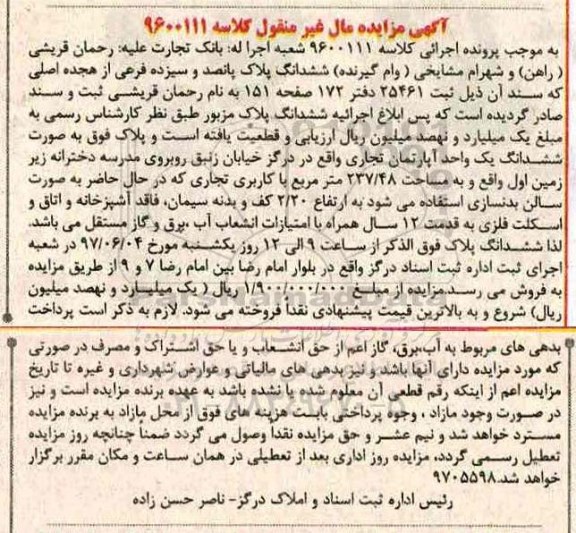 آگهی مزایده مال غیر منقول کلاسه ۹۶۰۰۱۱۱
به موجب پرونده اجرائی کلاسه ۹۶۰۰۱۱۱ شعبه اجرا له: بانک تجارت علیه: رحمان قریشی
( راهن) و شهرام مشایخی ( وام گیرنده) ششدانگ پلاک پانصد و سیزده فرعی از هجده اصلی
که سند آن ذیل ثبت ۲۵۴۶۱ دفتر ۱۷۲ صفحه ۱۵۱ به نام رحمان قریشی ثبت و سند
صادر گردیده است که پس ابلاغ اجرائیه ششدانگ پلاک مزبور طبق نظر کارشناس رسمی به
مبلغ یک میلیارد و نهصد میلیون ریال ارزیابی و قطعیت یافته است و پلاک فوق به صورت
ششدانگ یک واحد آپارتمان تجاری واقع در درگز خیابان زنبق روبروی مدرسه دخترانه زیر
زمین اول واقع و به مساحت ۲۳۷/۴۸ متر مربع با کاربری تجاری که در حال حاضر به صورت
سالن بدنسازی استفاده می شود به ارتفاع ۲/۲۰ کف و بدنه سیمان، فاقد آشپزخانه و اتاق و
اسکلت فلزی به قدمت ۱۲ سال همراه با امتیازات انشعاب آب ،برق و گاز مستقل می باشد.
لذا ششدانگ پلاک فوق الذکر از ساعت ۹ الی ۱۲ روز یکشنبه مورخ ۹۷/۰۶/۰۴ در شعبه
اجرای ثبت اداره ثبت اسناد درگز واقع در بلوار امام رضا بین امام رضا ۷ و ۹ از طریق مزایده
به فروش می رسد.مزایده از مبلغ ۱/۹۰۰/۰۰۰/۰۰۰ ریال ( یک میلیارد و نهصد میلیون
ریال) شروع و به بالاترین قیمت پیشنهادی نقدا فروخته می شود. لازم به ذکر است پرداخت
بدهی های مربوط به آب،برق، گاز اعم از حق انشعاب و یا حق اشتراک و مصرف در صورتی
که مورد مزایده دارای آنها باشد و نیز بدهی های مالیاتی و عوارض شهرداری و غیره تا تاریخ
مزایده اعم از اینکه رقم قطعی آن معلوم شده یا نشده باشد به عهده برنده مزایده است و نیز
در صورت وجود مازاد ، وجوه پرداختی بابت هزینه های فوق از محل مازاد به برنده مزایده
مسترد خواهد شد و نیم عشر و حق مزایده نقداً وصول می گردد ضمناً چنانچه روز مزایده
تعطیل رسمی گردد، مزایده روز اداری بعد از تعطیلی در همان ساعت و مکان مقرر برگزار
خواهد شد.۹۷۰۵۵۹۸
رئیس اداره ثبت اسناد و املاک درگز- ناصر حسن زاده